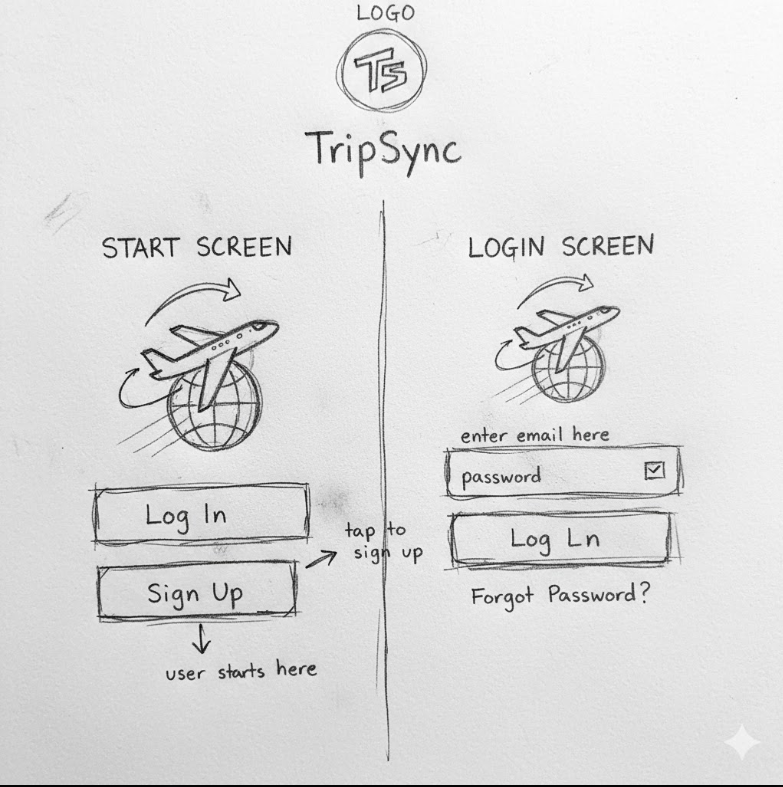 LOGO
TS
TripSync
START SCREEN
Log In
Sign Up
tap to
sign up
user starts here
LOGIN SCREEN
enter email here
password
Log Ln
Forgot Password?